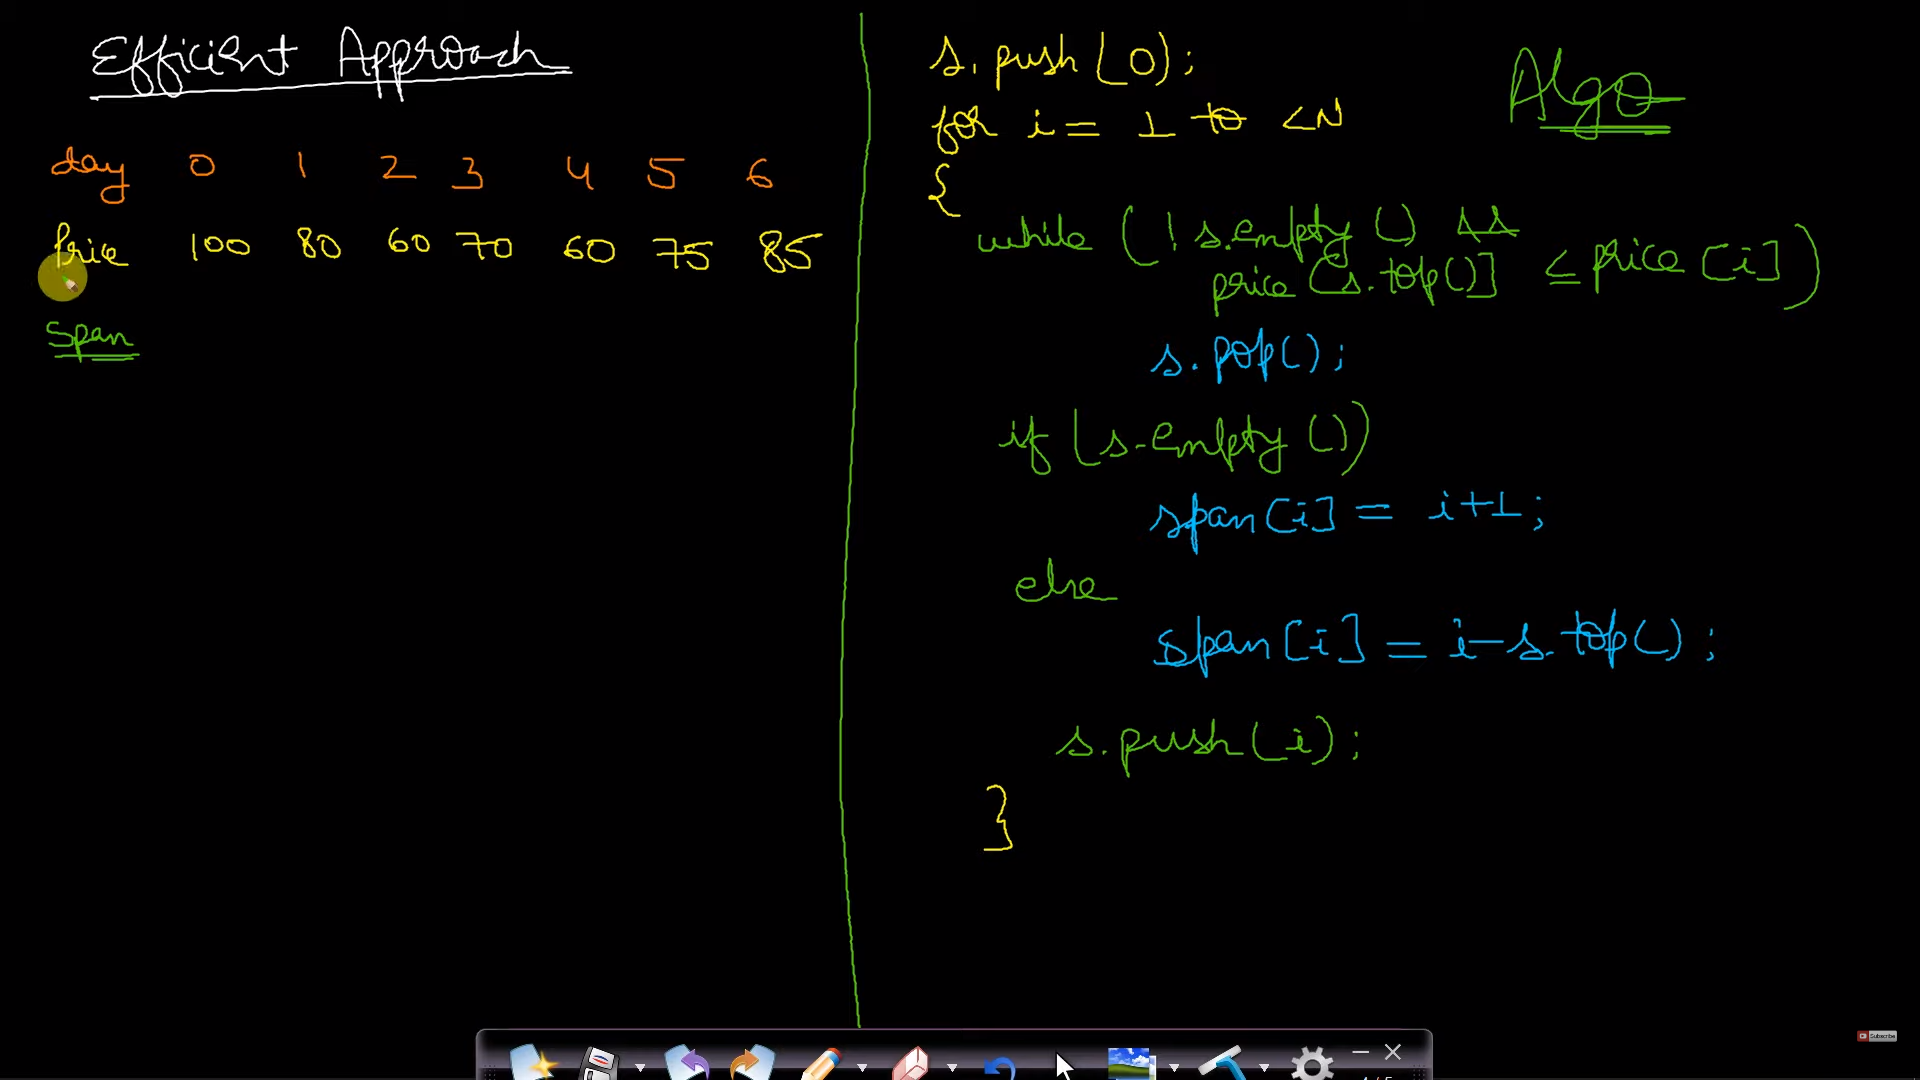 Efficient Approach
day 0 1 2 3 4 5 6
Price 100 80 60 70 60 75 85
Span
Algo
s.push(0);
for i = 1 to <N
{
while (!s.empty() &&
price[s.top()] ≤ price[i])
s.pop();
if (s.empty())
span[i] = i+1;
else
span[i] = i-s.top();
s.push(i);
}
Subscribe